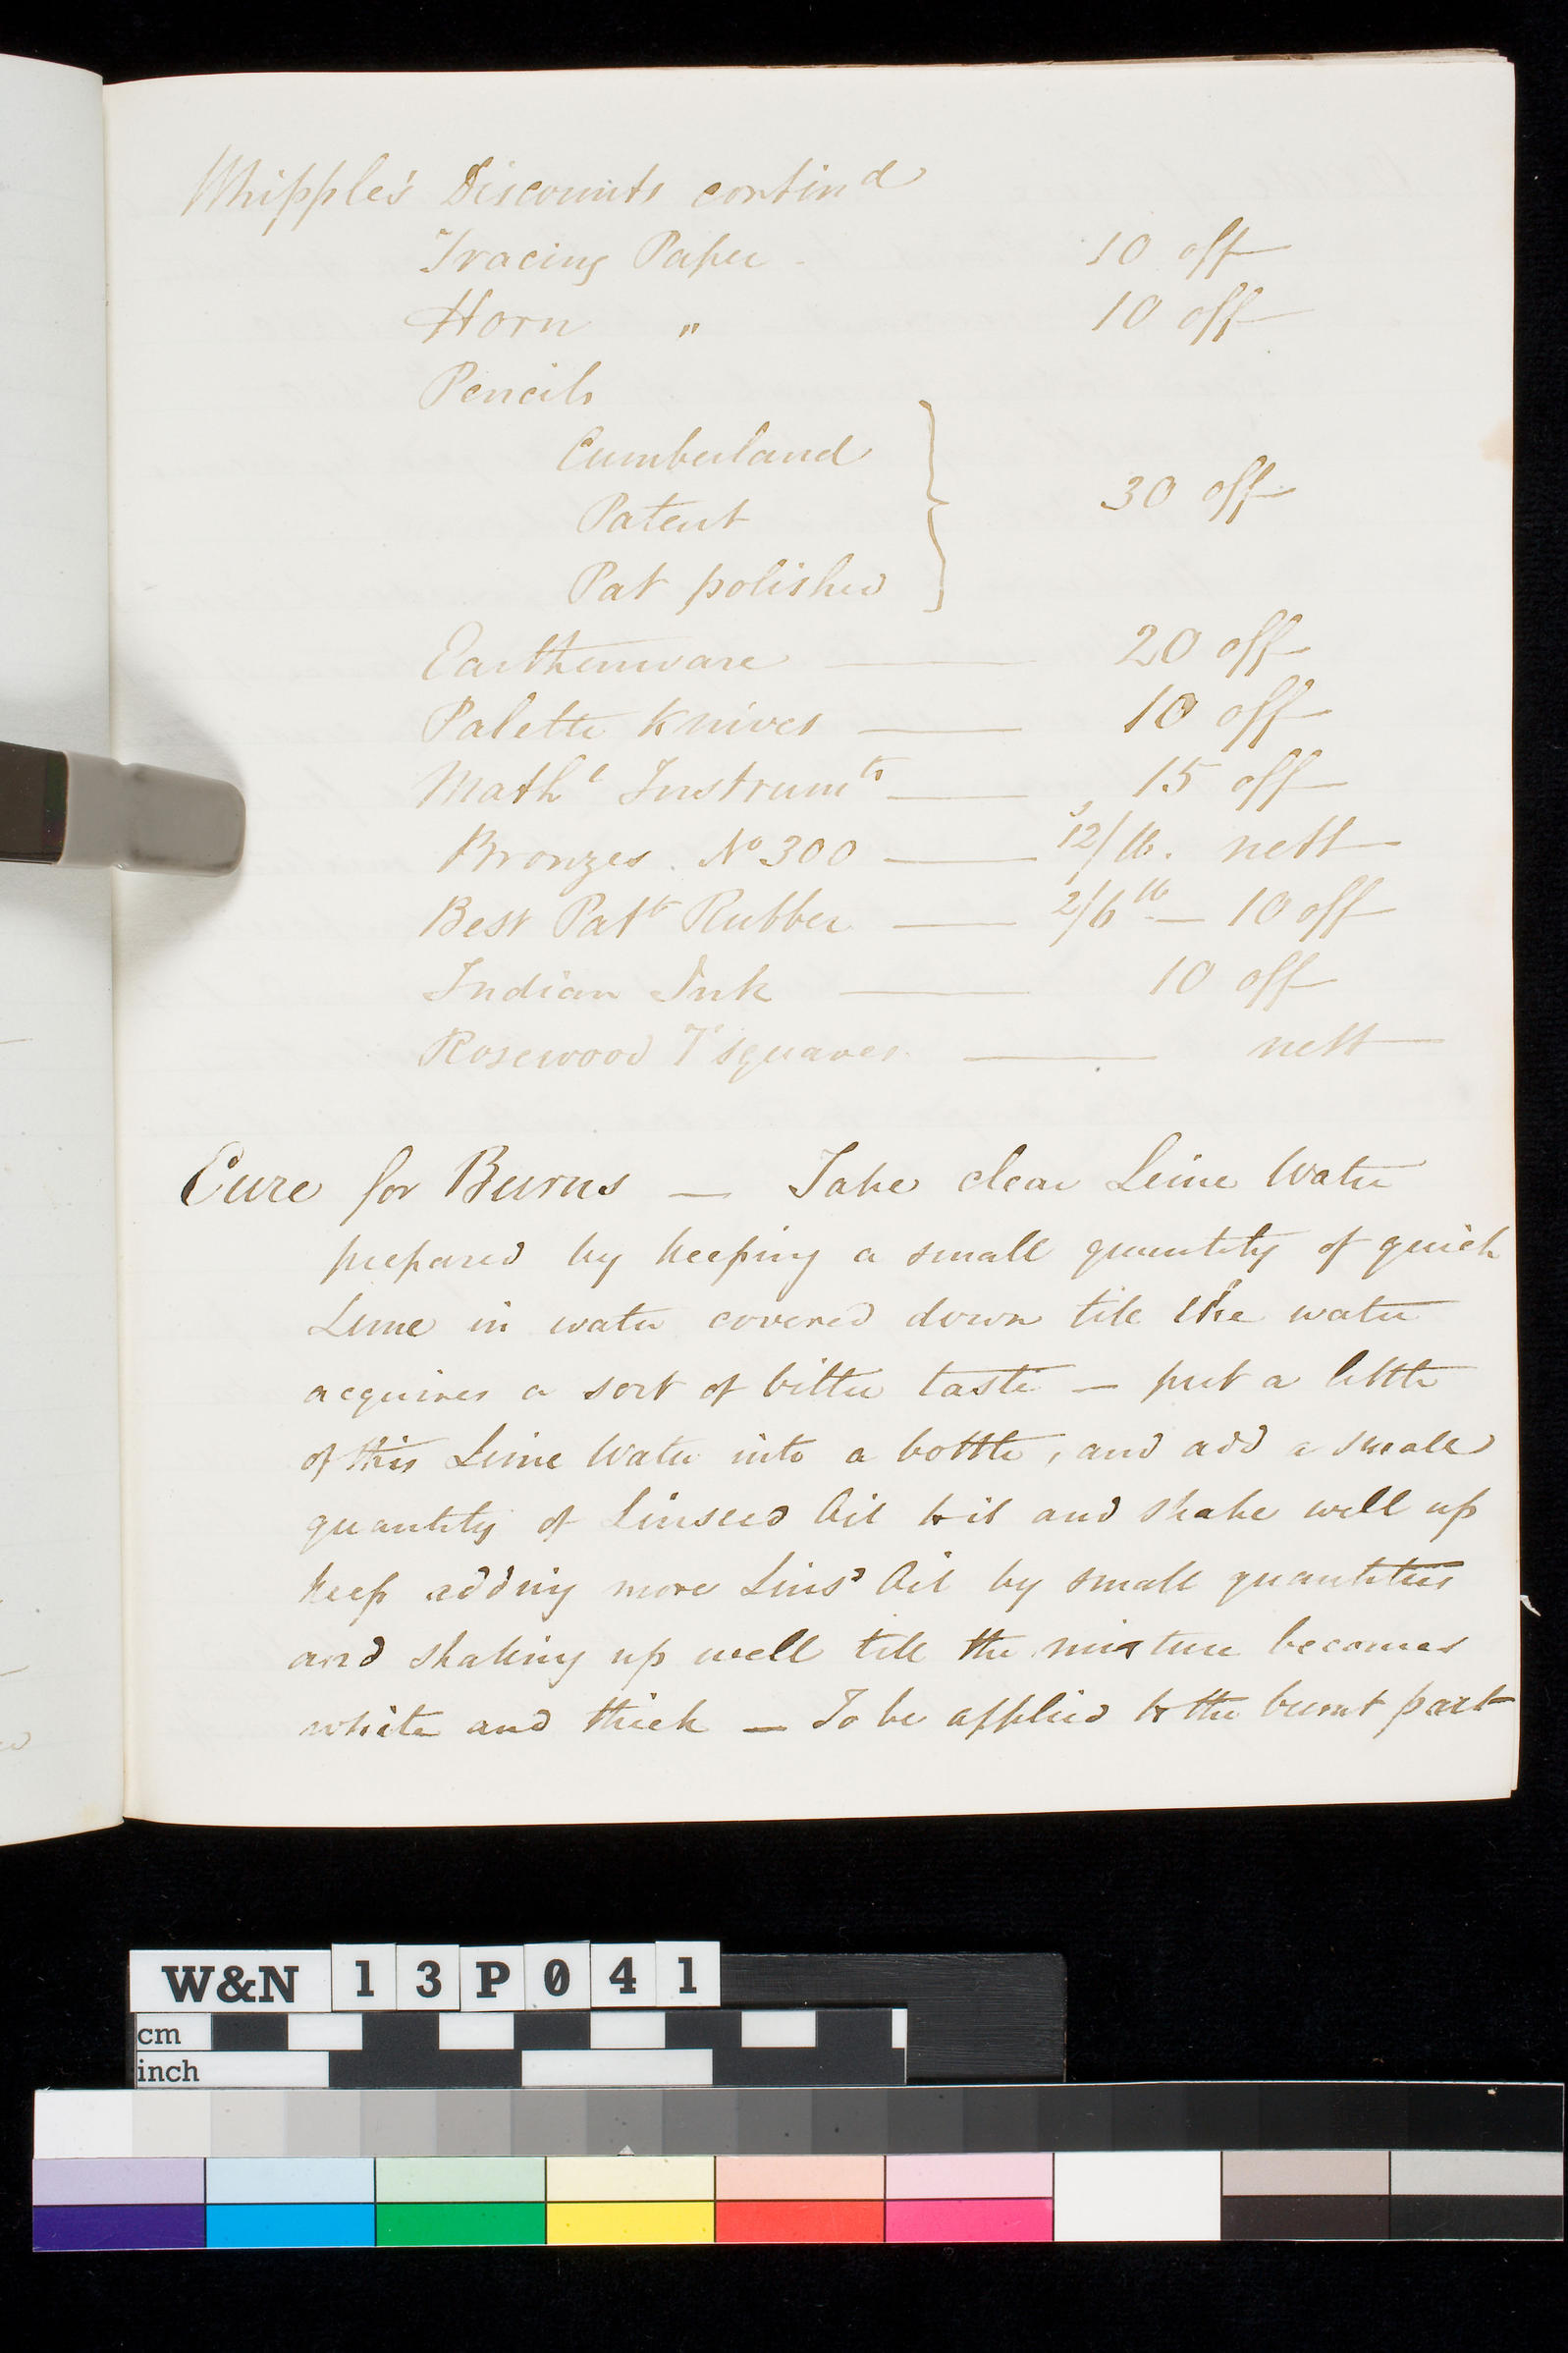 Whipple's Discounts contin^d
Tracing Paper 10 off
Horn " 10 off
Pencils
Cumberland
Patent 30 off
Pat polished
Earthenware — 20 off
Palette Knives — 10 off
Math^l Instrum^ts — 15 off
Bronzes. No 300 — ^s12/lb. nett
Best Pat^t Rubber — 2/6 ^lb — 10 off
Indian Ink — 10 off
Rosewood T squares — nett
Cure for Burns — Take clear Lime Water
prepared by keeping a small quantity of quick
Lime in water covered down till the water
acquires a sort of bitter taste — put a little
of this Lime Water into a bottle, and add a small
quantity of Linseed Oil to it and shake well up
keep adding more Lins^d Oil by small quantities
and shaking up well till the mixture becomes
white and thick — To be applied to the burnt part
W&N 13P041
cm
inch